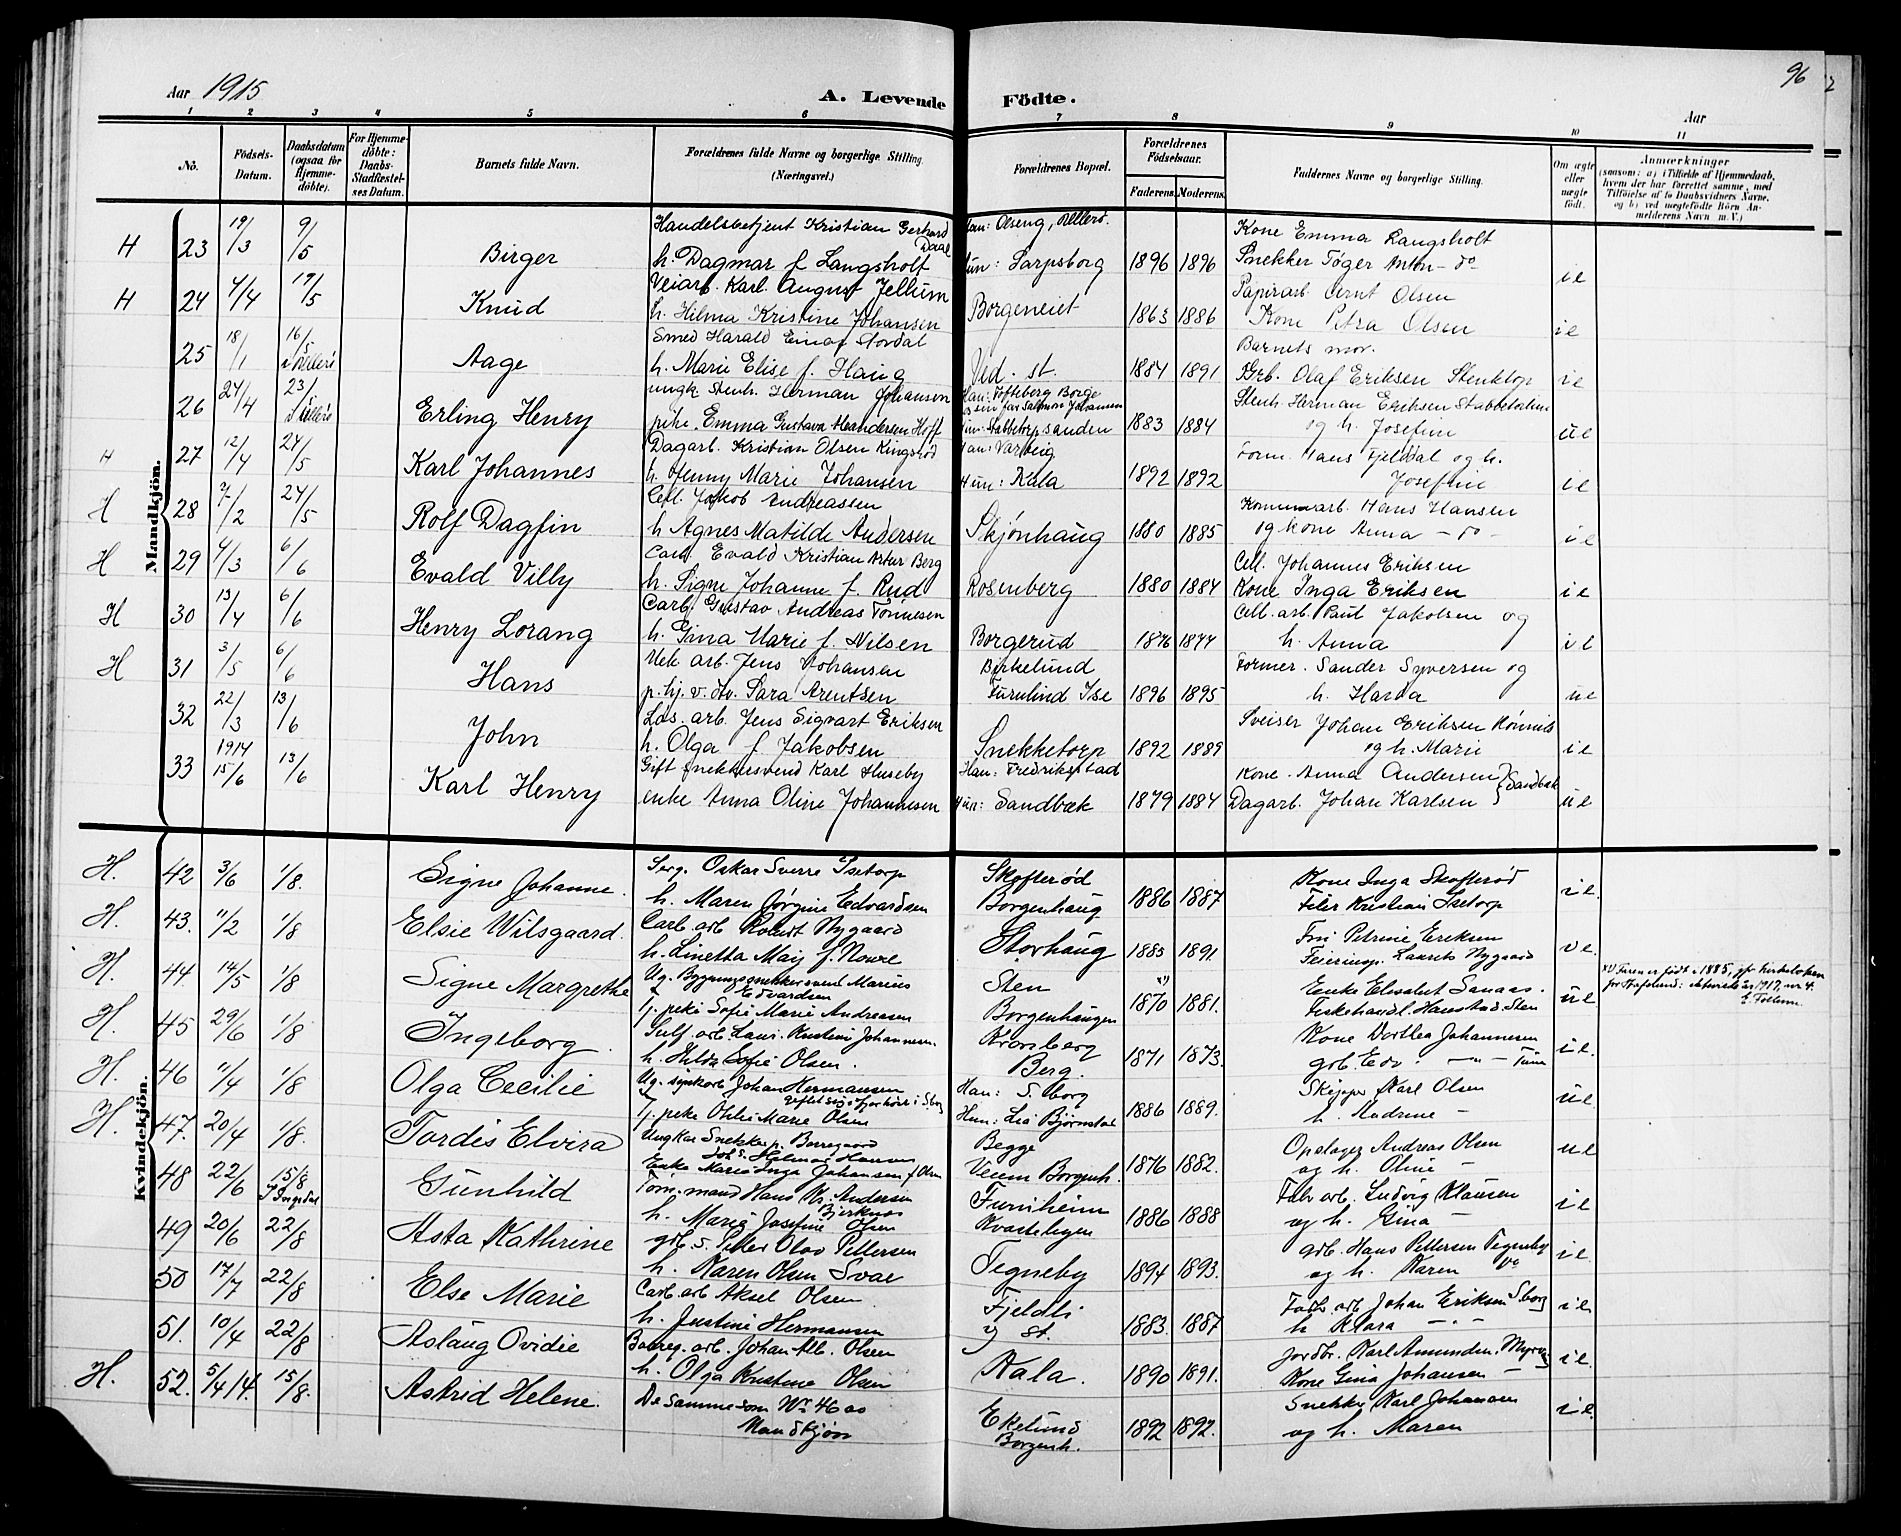 Aar 1915
A. Levende Födte.
96
Aar
1 2 3 4 5 6 7 8 9 10 11
No. Födsels-Datum. Daabsdatum (ogsaa för Hjemme-döbte). For Hjemme-döbte: Daabs-Stadfæstel-ses Datum. Barnets fulde Navn. Forældrenes fulde Navne og borgerlige Stilling. (Næringsvei.) Forældrenes Bopæl. Forældrenes Födselsaar. Faderens. Moderens. Faddernes Navne og borgerlige Stilling. Om ægte eller uægte födt. Anmærkninger (saasom: a) i Tilfælde af Hjemmedaab, hvem der har forrettet samme, med Tilföielse af to Daabsvidners Navne, og b) ved uægtefödte Börn An-melderens Navn m. V.)
Mandkjön.
H 23 19/3 9/5 Birger Handelsbetjent Kristian Gerhard Daae
h. Dagmar f Langsholt Han: Olseng, Hun: Sarpsborg 1896 1896 Kone Emma Langsholt
Snekker Anton - do - ie
H 24 4/4 17/5 Knud Veiarb. Karl August Jellum
h. Hilma Kristine Johansen Borgeneiet 1863 1886 Papirarb. Arnt Olsen
Kone Petra Olsen ie
25 18/1 16/5 Aage Smed Harald Einar Stordal
h. Marie Elise f. Haug Ved. st. 1884 1891 Barnets mor.
Grb. Olaf Eriksen Stenktop ie
26 24/4 23/5 Erling Henry ungk Stenh. Herman Johansen
pike. Emma Gustava Hoff Han: Tofteberg Borge
1883 1884 Stenh. Herman Eriksen
og h. Josefine ue
H 27 12/4 24/5 Karl Johannes Dagarb. Kristian Olsen Kingsrød
h. Jenny Marie Johansen Han: Varteig
Hun: Kala 1892 1892 Form. Hans Fjeldal og h.
Josefine ie
H 28 7/2 24/5 Rolf Dagfin Cell. Jakob Andreassen
h Agnes Matilde Andersen Skjønhaug 1880 1885 Kommunearb. Hans Hansen
og kone Anna - do - ie
H 29 4/3 6/6 Evald Villy Carb Evald Kristian Artur Berg
h. Signe Johanne f. Rud Rosenberg 1880 1884 Cell. Johannes Eriksen
Kone Inga Eriksen ie
H 30 13/4 6/6 Henry Lorang Carb. Gustav Andreas Tønnesen
h. Gina Marie f. Nilsen Borgerud 1876 1877 Cell. arb. Paul Jakobsen og
h. Anna ie
H 31 3/5 6/6 Hans Mek arb. Jens Johansen
p. hj. v. dv. Sara Arentsen Birkelund
Furulund Ise 1896 1895 Former. Sander Syversen og
h. Harda ue
32 22/3 13/6 John Los. arb. Jens Sigvart Eriksen
h. Olga f Jakobsen Snekketorp 1892 1889 Sveiser Johan Eriksen
og h. Marie ie
33 1914 15/6 13/6 Karl Henry Gift snekkersvend Karl Huseby
enke Anna Oline Johannesen Han: Fredrikstad
Hun: Sandbæk 1879 1884 Kone. Anna Andersen
Dagarb. Johan Karlsen } Sandbæk ue
Kvindekjön.
H. 42 3/6 1/8. Signe Johanne. Serg. Oskar Sverre Isetorp
h. Maren Jørgine Edvardsen Skofterød
Borgenhaug 1886 1887 Kone Inga Skofterød
Filer Kristian Isetorp ie.
H. 43. 11/2 1/8 Elsie Wilsgaard. Carb. arb Robert Nygaard
h. Linetta May f. Nowe Storhaug 1885 1891 Frú Petrine Eriksen
Feierinsp. Laurits Nygaard ie.
H. 44. 14/5 1/8 Signe Margrethe Ug. Bygningssnekkersvend Marius Edvardsen
fj. peke Sofie Marie Andreasen Sten
Borgenhaugen x) 1870 1881. Enke Elisabet Sanaas.
Fiskehandl. Hanstad. Sten ue x) Faren er født 1885, jfr kirkeboken
H. 45 29/6 1/8 Ingeborg. Sulf. arb Hans Kristian Johannesen.
h. Hilda Sofie Olsen. Kronsberg
Berg. 1871 1873. Kone Dorthea Johannesen
grb. Edv - " - Tune ie.
H. 46 11/4 1/8 Olga Cecilie Ug. Johan Hermansen
fj. peke Othilie Marie Olsen Han: S.borg
Hun: Lia Bjørnstad 1886 1889. Skipper Karl Olsen
h. Andrine - ue.
H. 47. 20/4 1/8. Tordis Elvira Ungkar Snekker p. Borregaard
Johs. Hilmar Hansen
Enke Marie Inga Johansen f Olsen Begge
Veum Borgenh. 1876 1882. Oplager Andreas Olsen
og h. Oline - ue
48 22/6 15/8 Gunhild Tom. mand Hans Kr. Andersen Bjerknes
h. Marie Josefine Olsen Furuheim
1886 1888 Fabr arb. Ludvig Klausen
og h. Gina - ie
49 20/6 22/8 Asta Kathrine grb. s. Peter Olav Pettersen
h. Karen Olsen Svae Tegneby 1894 1893. Grb. Hans Pettersen Tegneby
og h. Karen do ie
50 17/7 22/8 Else Marie Carb. arb Aksel Olsen
h. Justine Hermansen Fjeldli
y st. 1883. 1887 Fabr. arb Johan Eriksen S.borg
h Klara - " - ie
51. 10/4 22/8 Aslaug Ovidie Borreg. arb. Johan Alb. Olsen
h. Olga Kristine Olsen Kala. 1890 1891. Jordbr. Karl Amundsen.
Kone Gina Johansen - ie.
H. 52. 5/4 14. 15/8. Astrid Helene. De samme som Nr 46 as
Mandkjøn Ekelund
Borgenh. 1892 1892. Snekker Karl Johansen
og h. Maren ie.